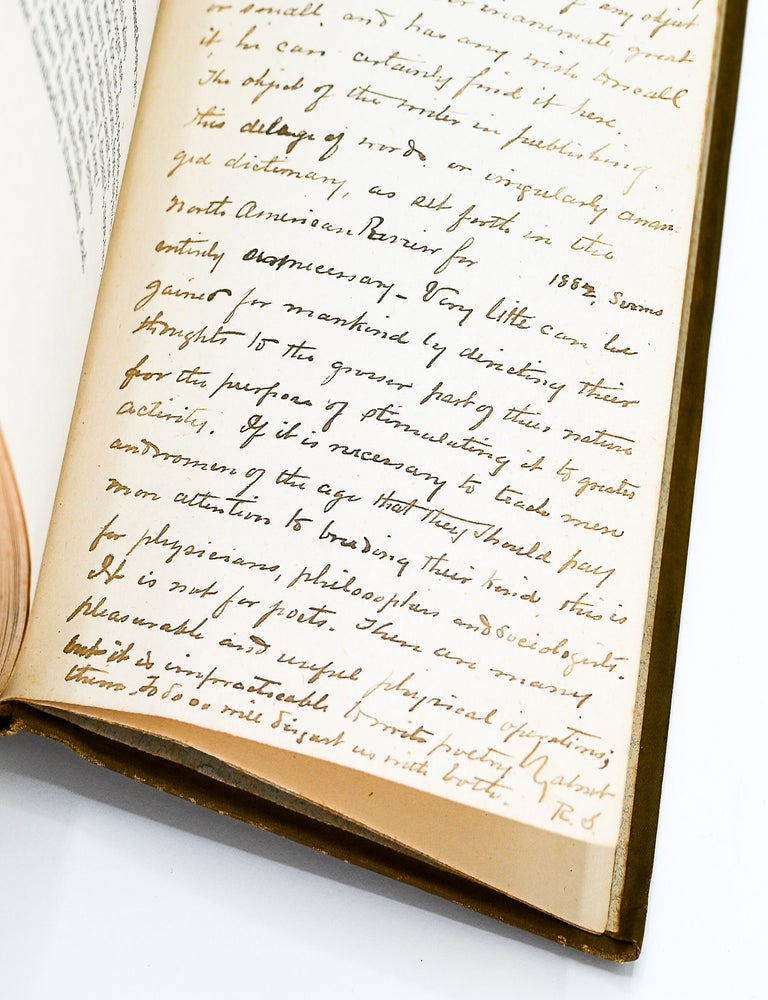 of any object
inanimate, great
or small and has any wish to recall
it, he can certainly find it here.
The object of the writer in publishing
this deluge of words or irregularly arran-
ged dictionary, as set forth in the
North American Review for 1882, Seems
entirely unnecessary. Very little can be
gained for mankind by directing their
thoughts to the grosser part of their nature
for the purpose of stimulating it to greater
activity. If it is necessary to teach men
and women of the age that they should pay
more attention to breeding their kind, this is
for physicians, philosophers and sociologists.
It is not for poets. There are many
pleasurable and useful physical operations;
but it is impracticable to write poetry about
them. To do so will disgust us with both.
R. S.